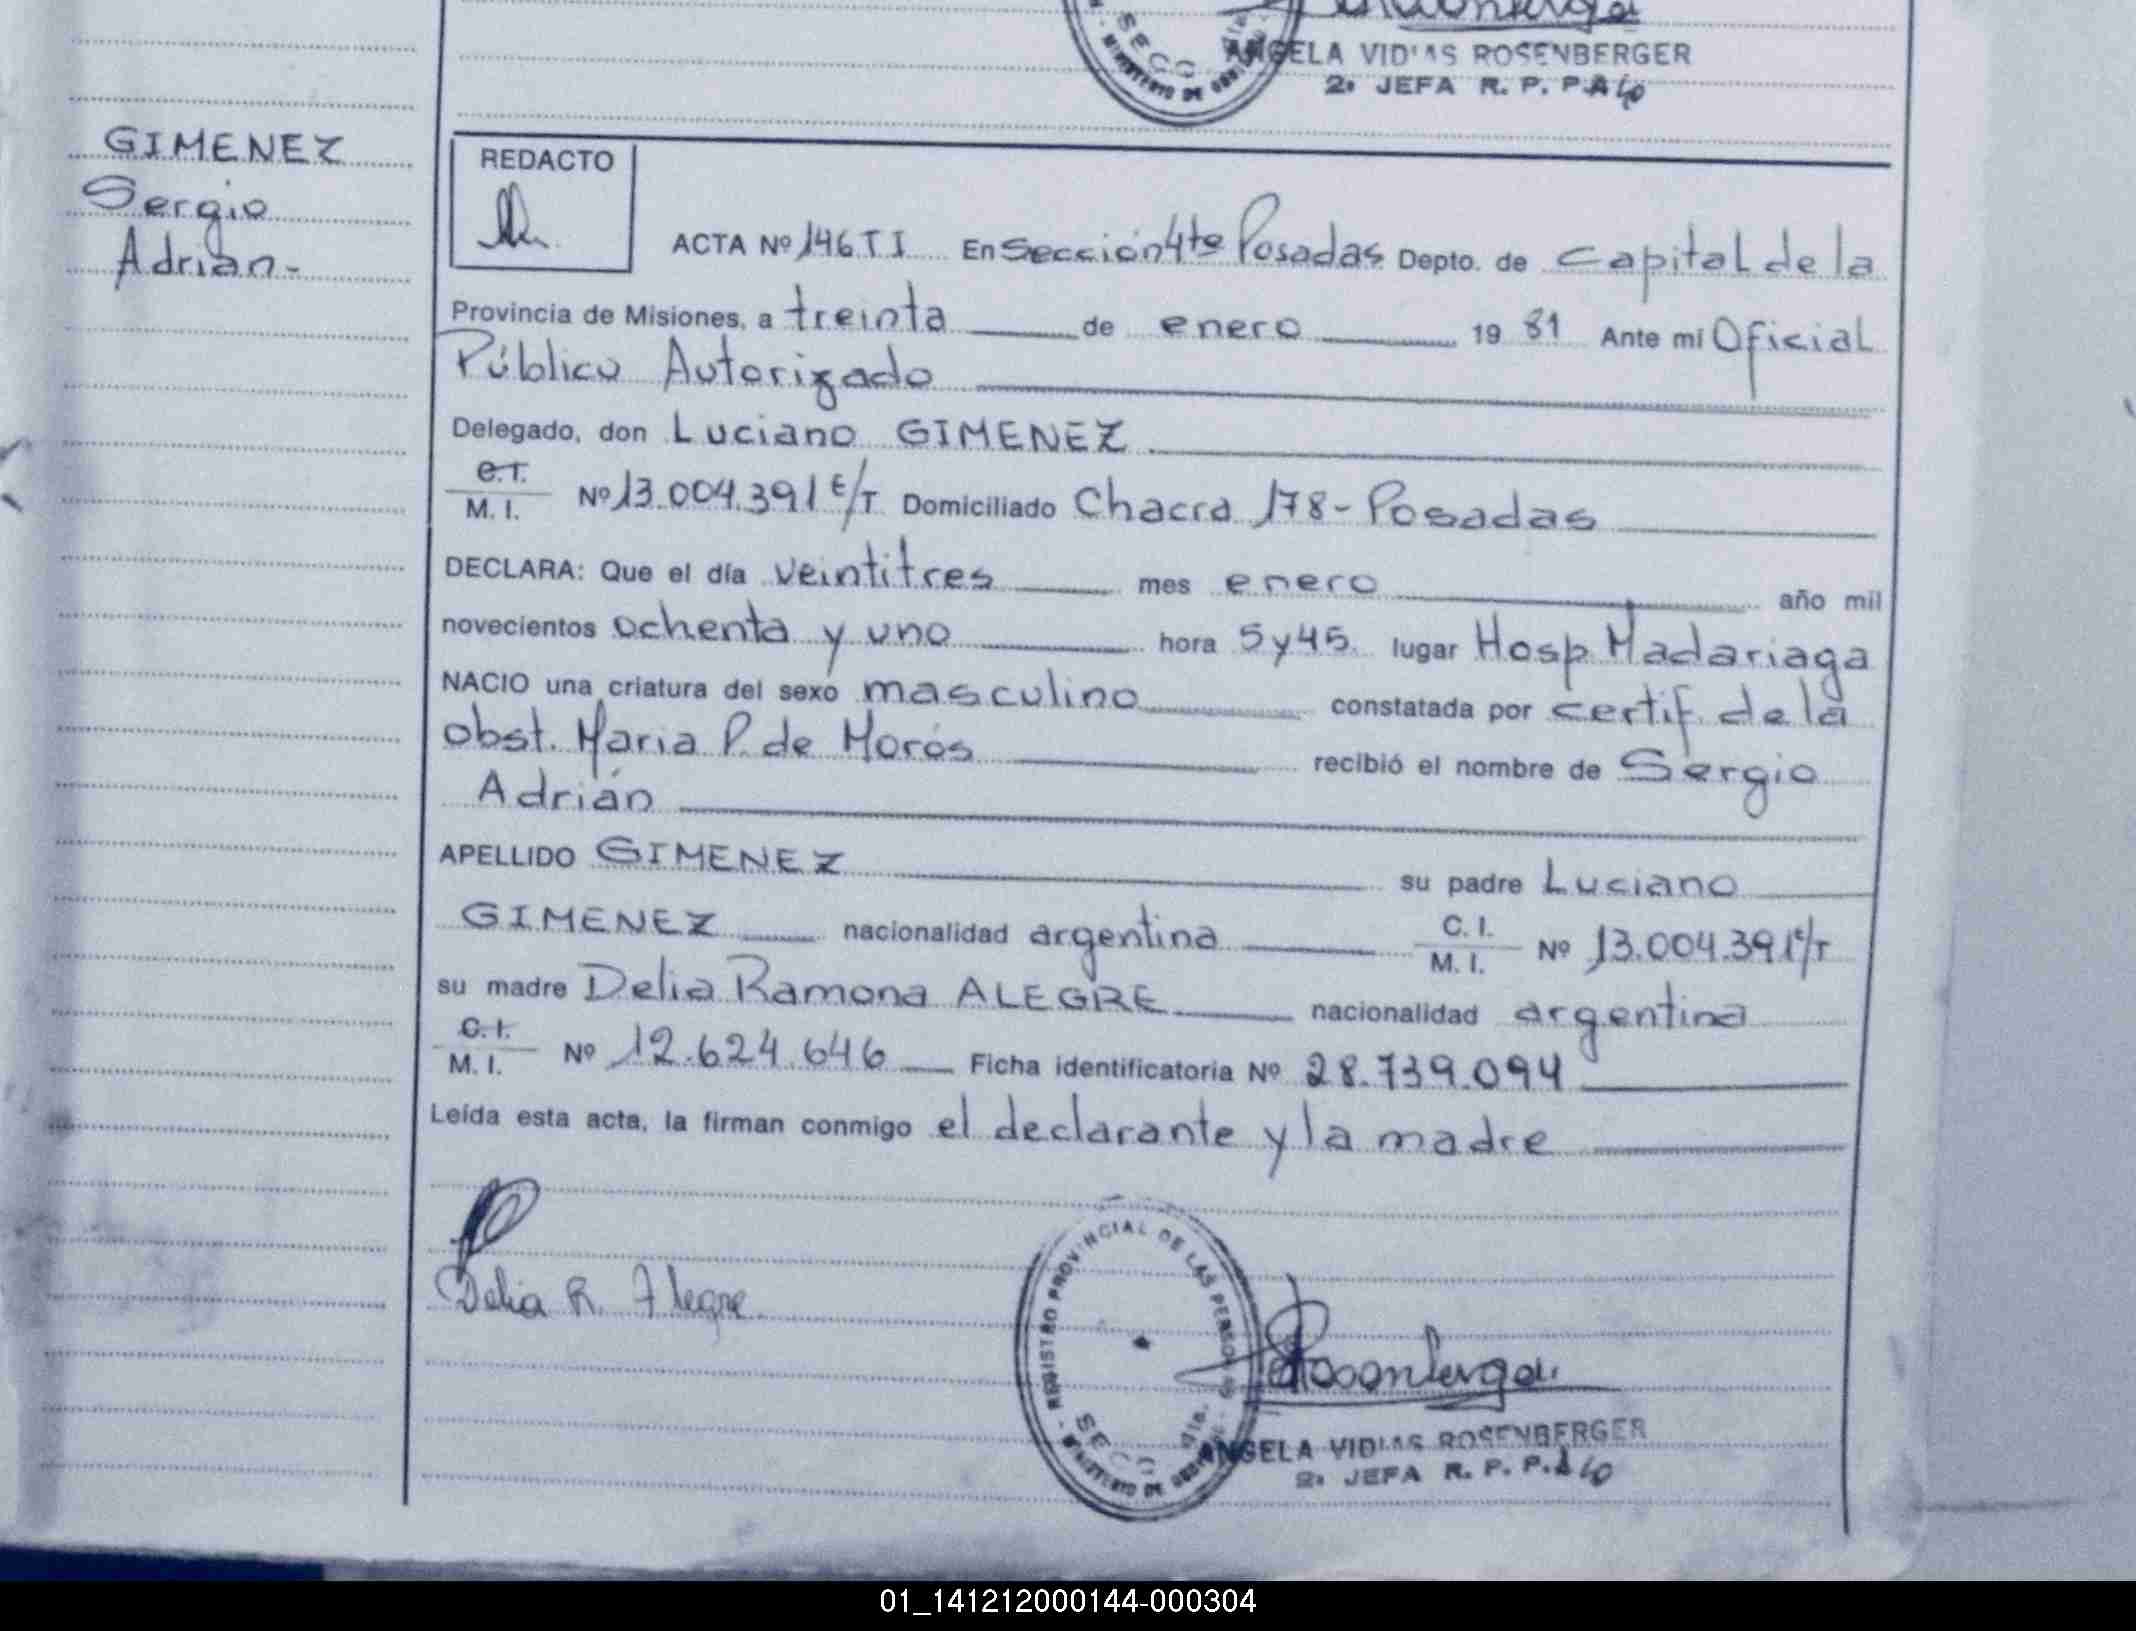 ANGELA VIDIAS ROSENBERGER
2ª JEFA R. P. P.
GIMENEZ
Sergio
Adrián-
REDACTO
ACTA Nº 146 T I En Sección 4ta Posadas Depto. de Capital de la
Provincia de Misiones, a treinta de enero 19 81 Ante mí Oficial
Público Autorizado
Delegado, don Luciano GIMENEZ
C.I.
M. I. Nº 13.004.391 E/T Domiciliado Chacra 178-Posadas
DECLARA: Que el día veintitres mes enero año mil
novecientos ochenta y uno hora 5 y 45. lugar Hosp. Madariaga
NACIO una criatura del sexo masculino constatada por certif. de la
obst. Maria P. de Morós recibió el nombre de Sergio
Adrián
APELLIDO GIMENEZ su padre Luciano
GIMENEZ nacionalidad argentina C. I.
M. I. Nº 13.004.391 E/T
su madre Delia Ramona ALEGRE nacionalidad argentina
C. I.
M. I. Nº 12.624.646 Ficha identificatoria Nº 28.739.094
Leída esta acta, la firman conmigo el declarante y la madre
Delia R. Alegre
REGISTRO PROVINCIAL DE LAS PERSONAS
SECC
ANGELA VIDIAS ROSENBERGER
2ª JEFA R. P. P.
01_141212000144-000304